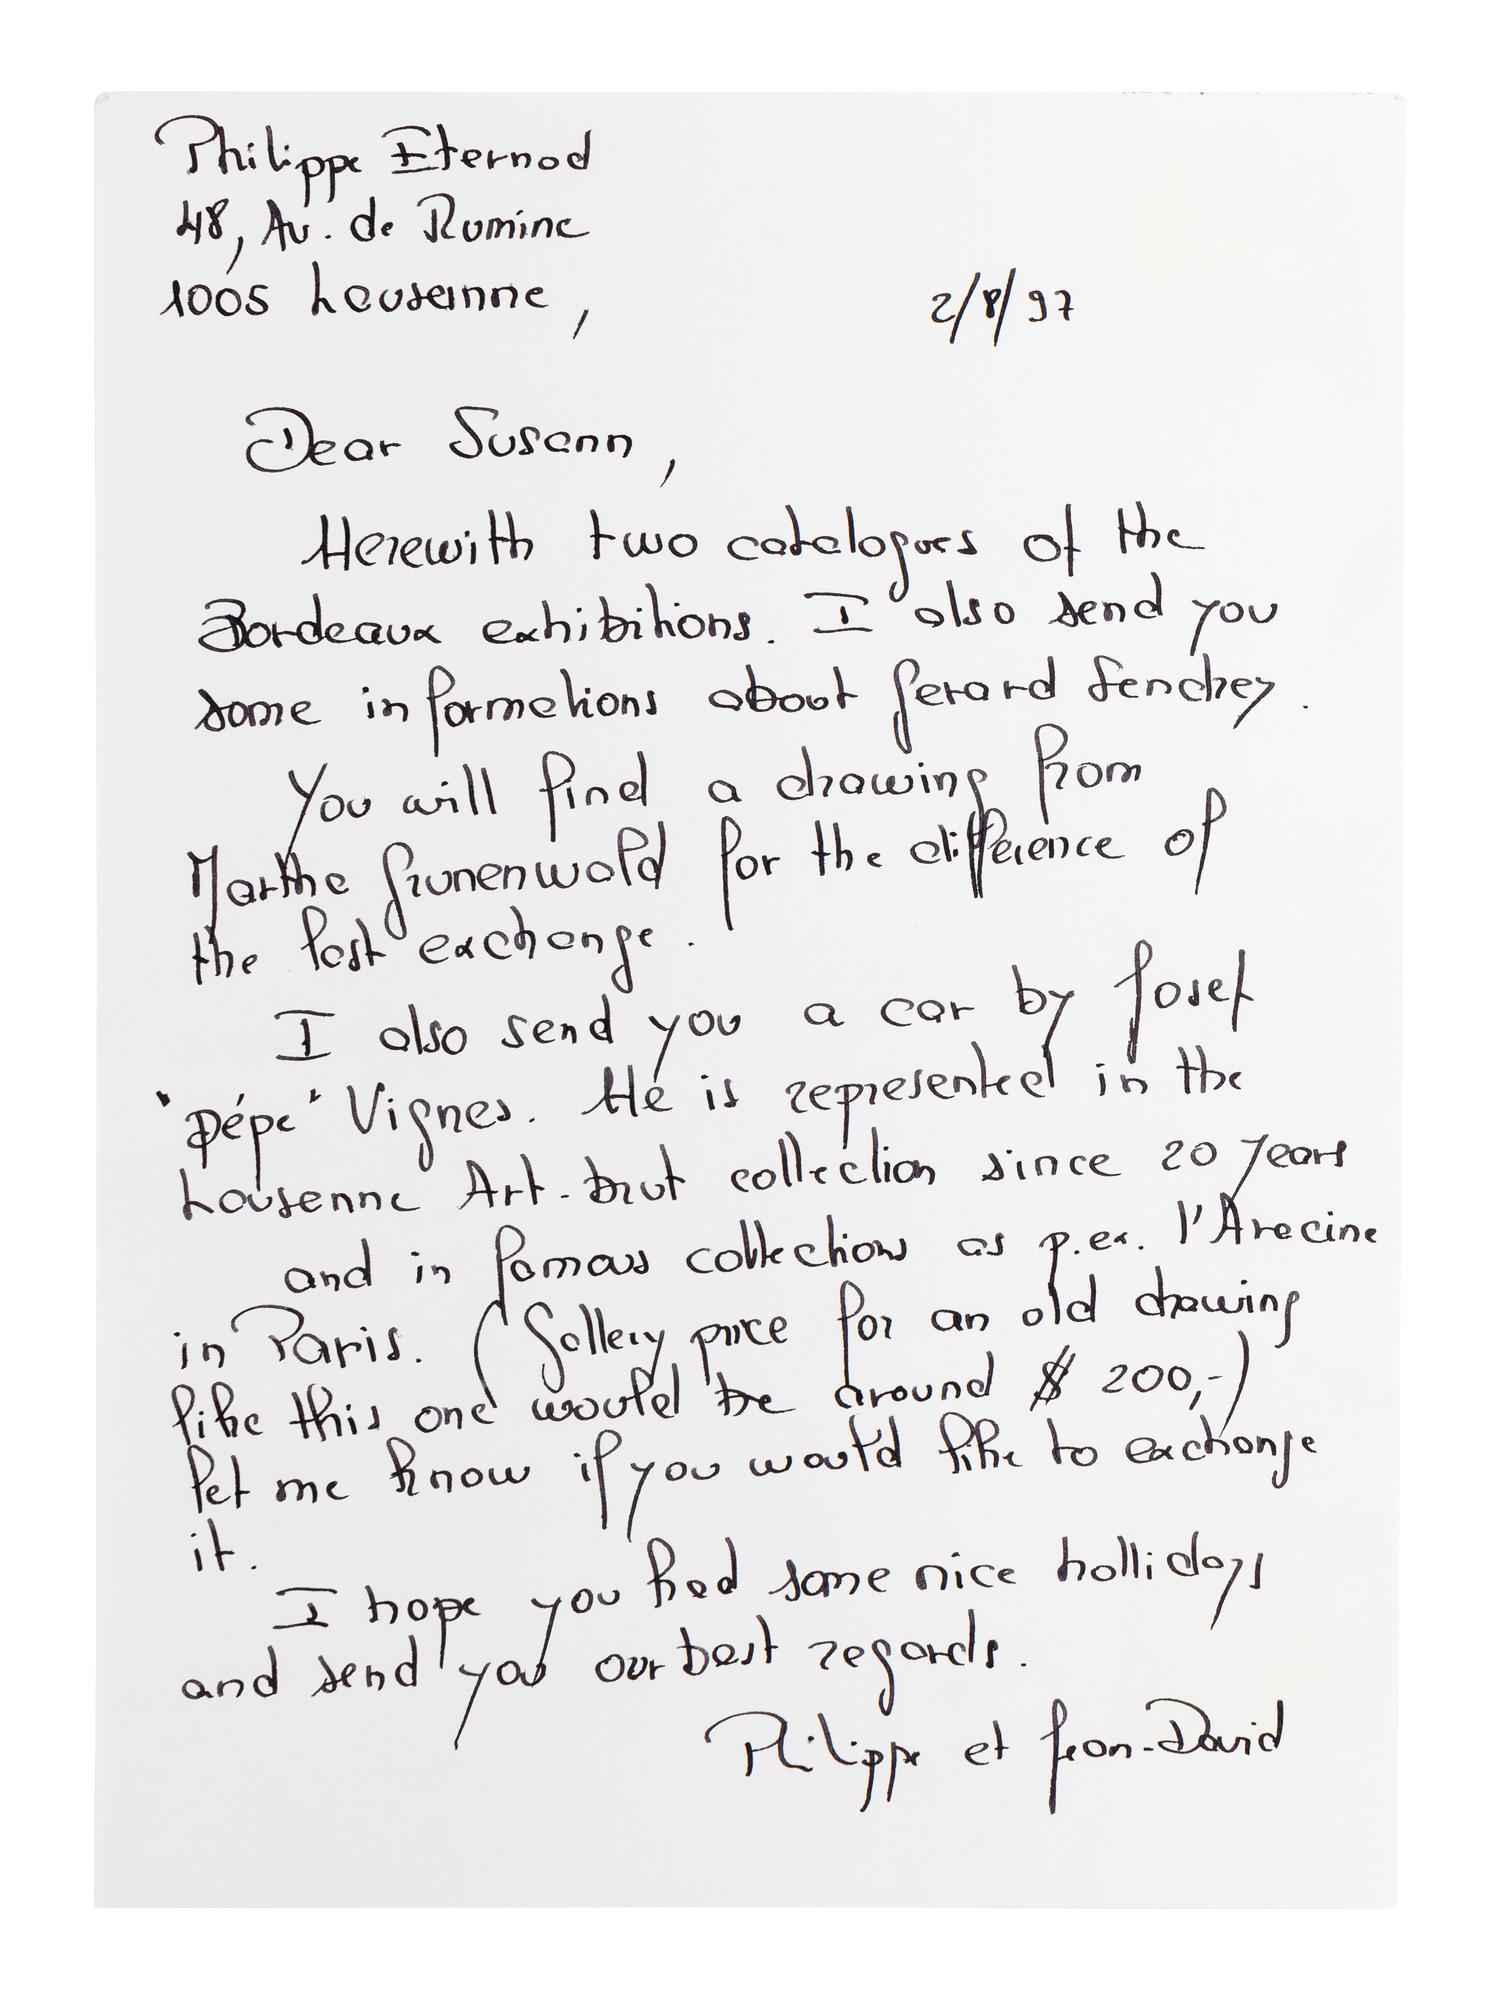 Philippe Eternod
48, Av. de Rumine
1005 Lausanne,
2/8/97
Dear Susann,
Herewith two catalogues of the
Bordeaux exhibitions. I also send you
some informations about Gerard Sendrey.
You will find a drawing from
Marthe Grunenwald for the difference of
the last exchange.
I also send you a car by Josef
"Pépé" Vignes. He is represented in the
Lausanne Art-brut collection since 20 years
and in famous collections as p.ex. l'Aracine
in Paris. (Gallery price for an old drawing
like this one would be around $ 200,-)
let me know if you would like to exchange
it.
I hope you had some nice hollidays
and send you our best regards.
Philippe et Jean-David